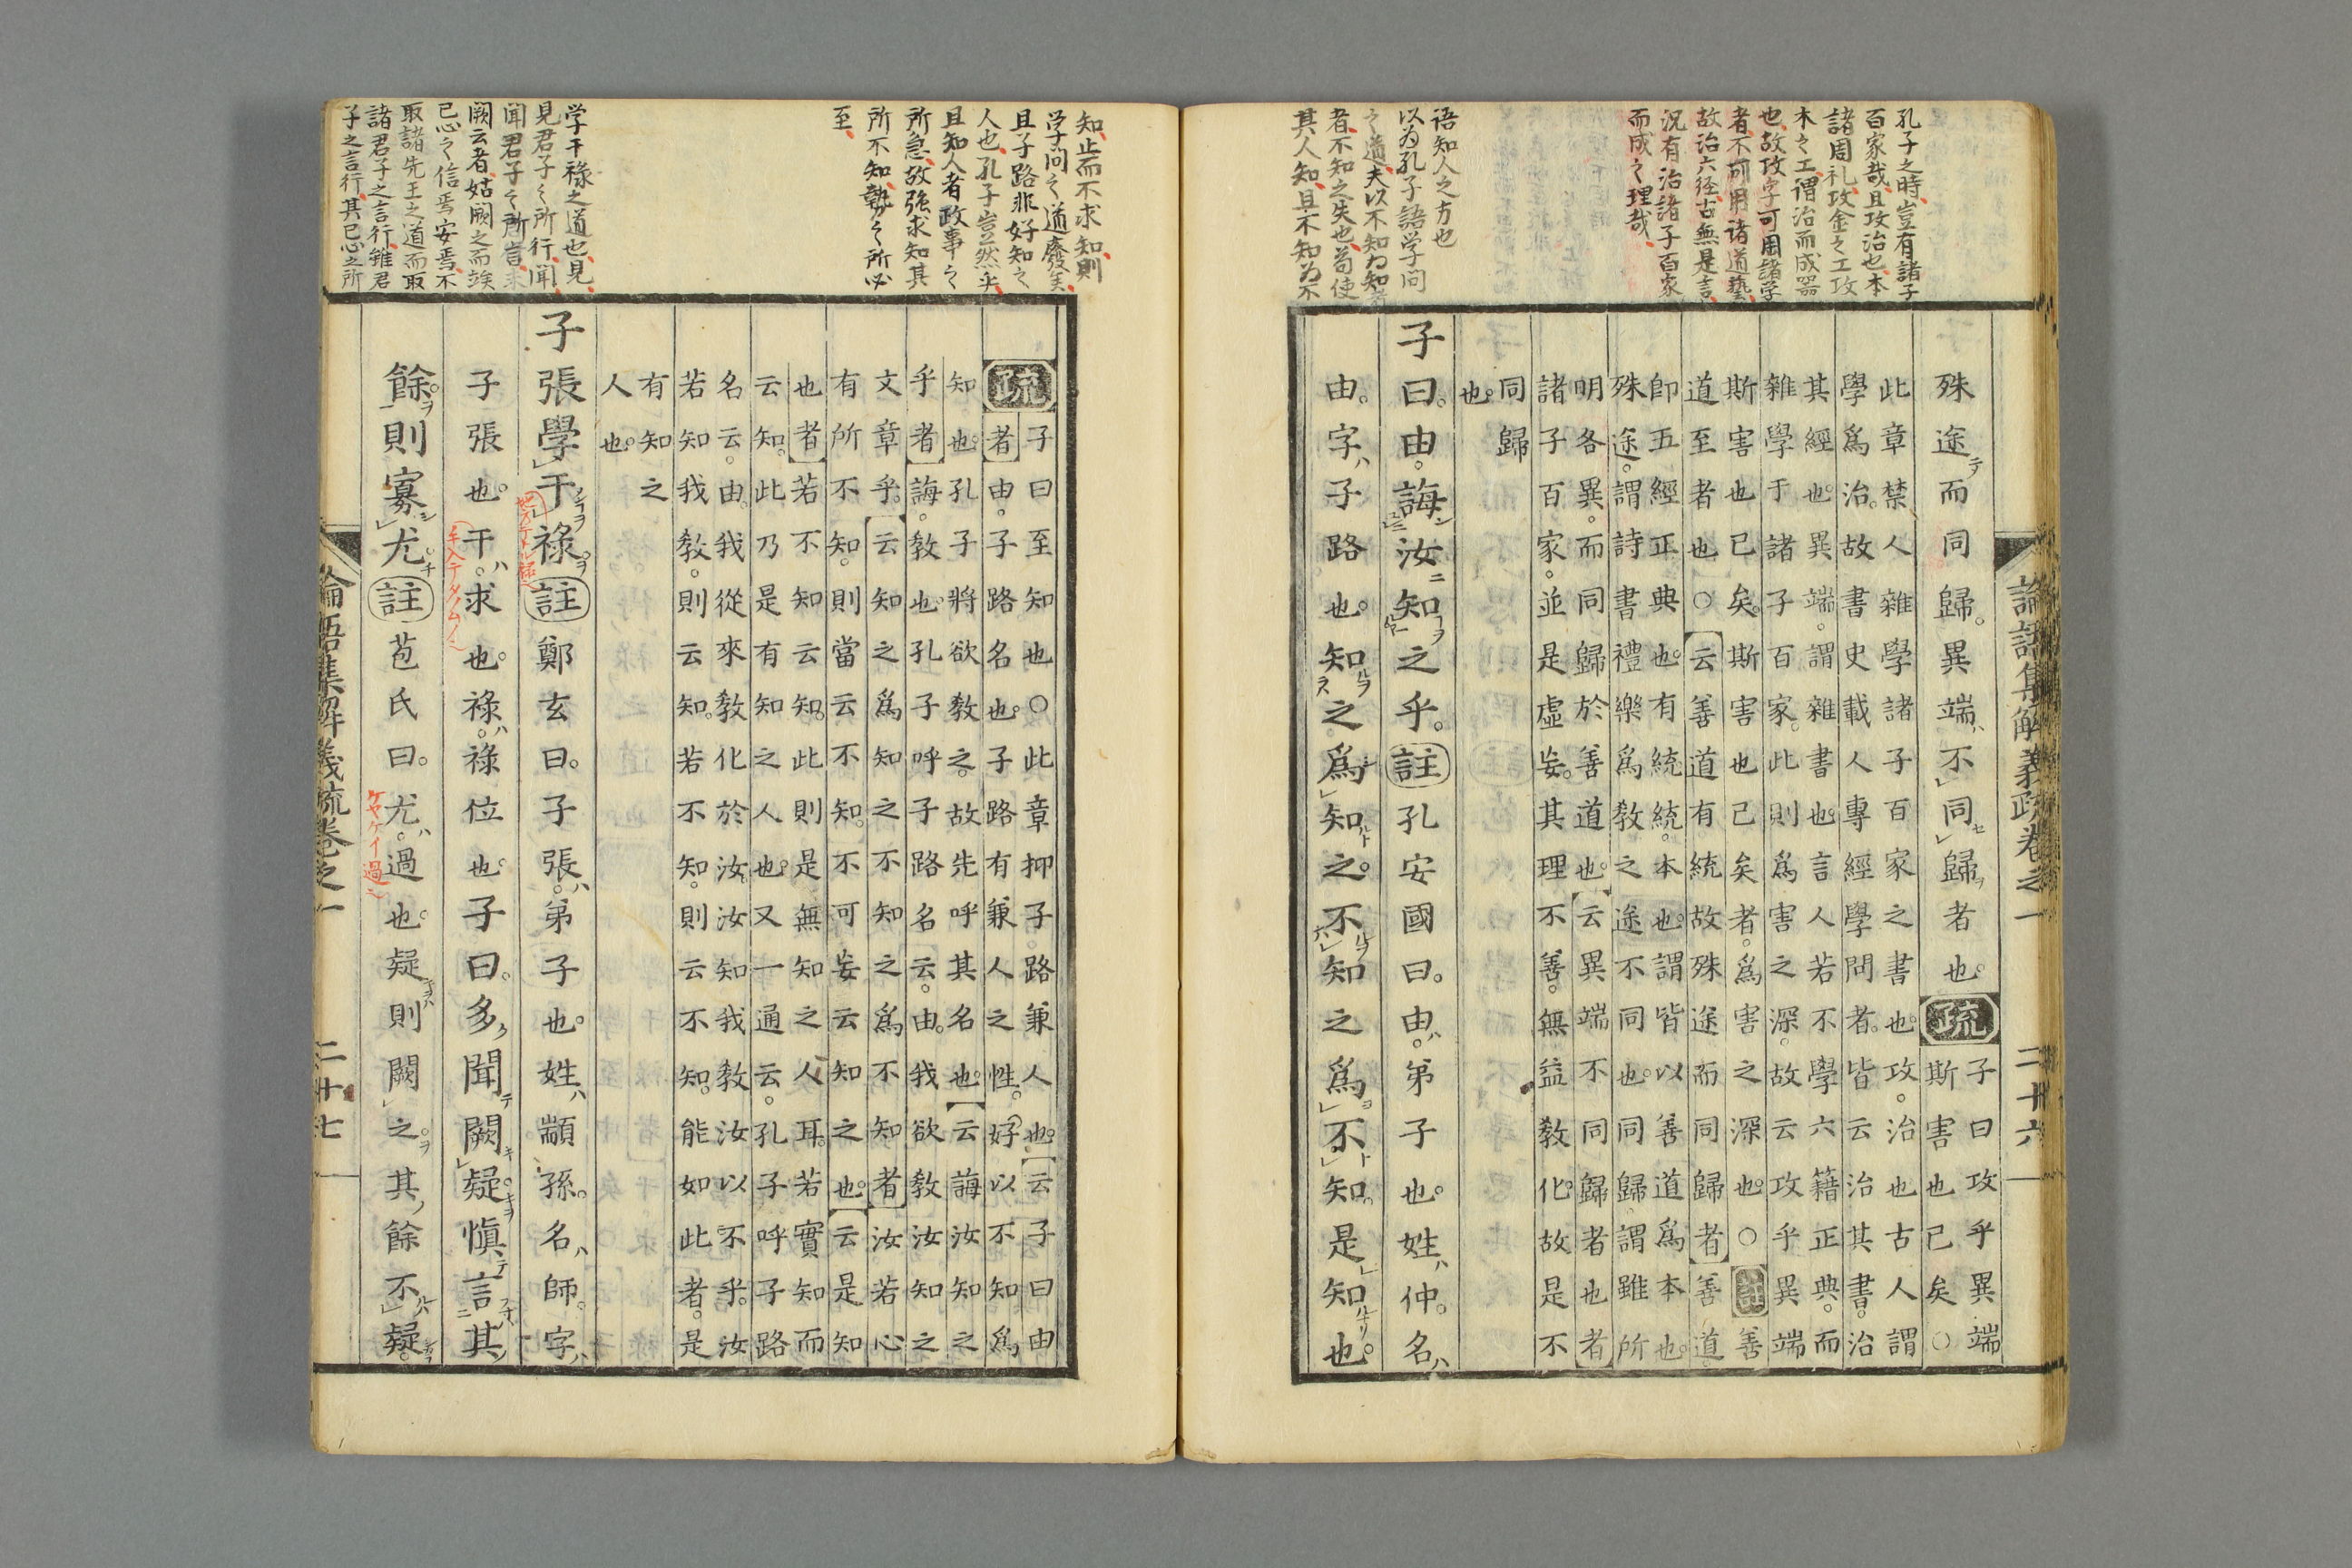 孔子之時、豈有諸子
百家哉、且攻治也、本
諸周礼攻金之工攻
木之工、謂治而成器
也、故攻字可用諸学
者、不可用諸道藝、
故治六経、古無是言、
況有治諸子百家
而成之理哉、
語知人之方也
以為孔子語学問
之道、夫以不知為知者
者、不知之失也、苟使
其人知、且不知為不
論語集解義疏卷之一 二十六
殊途テ而同歸。異端ハ不同セ歸ヲ者也。疏子曰攻乎異端
斯害也已矣○
此章禁人雜學諸子百家之書也。攻。治也古人謂
學爲治。故書史載人專經學問者。皆云治其書。治
其經也。異端。謂雜書也。言人若不學六籍正典。而
雜學于諸子百家。此則爲害之深。故云攻乎異端
斯害也已矣。斯害也已矣者。爲害之深也。○註善
道至者也○云善道有統故殊途而同歸者善道
卽五經正典也。有統統。本也。謂皆以善道爲本也。
殊途。謂詩書禮樂爲敎之途不同也。同歸謂雖所
明各異。而同歸於善道也。云異端不同歸者也者
諸子百家。並是虛妄。其理不善。無益敎化。故是不
同歸
也。
子曰。由。誨汝ニ知之乎。註孔安國曰。由ハ。弟子也。姓ハ仲。名ハ
由。字ハ子路也。知之爲知之。不知之爲不知。是知也。
知、止而不求知、則
学問之道廢矣、
且子路非好知之
人也、孔子豈然乎、
且知人者政事之
所急、故強求知其
所不知、勢之所必
至、
学干祿之道也、見
見君子之所行、聞
聞君子之所言、未
闕云者、姑闕之而俟
己心之信焉安焉、不
取諸先王之道而取
諸君子之言行、雖君
子之言行、其己心之所
疏子曰至知也○此章抑子路兼人也。云子曰由
者由。子路名也。子路有兼人之性。好以不知爲
知也。孔子將欲敎之。故先呼其名也。云誨汝知之
乎者誨。敎也。孔子呼子路名云。由。我欲敎汝知之
文章乎。云知之爲知之不知之爲不知者汝若心
有所不知。則當云不知。不可妄云知之也。云是知
也者若不知云知。此則是無知之人耳。若實知而
云知。此乃是有知之人也。又一通云。孔子呼子路
名云。由。我從來敎化於汝。汝知我敎汝以不乎。汝
若知我敎。則云知。若不知。則云不知。能如此者。是
有知之
人也。
子張學干祿ヲ註鄭玄曰。子張ハ。弟子也。姓ハ顓孫。名ハ師。字ハ
子張也。干ハ。求也。祿ハ。祿位也。子曰。多ク聞テ闕キ疑ヲ愼テ言其ノ
餘ヲ則寡シ尤註苞氏曰。尤ハ。過也。疑則闕之。其ノ餘不疑。
論語集解義疏卷之一 二十七